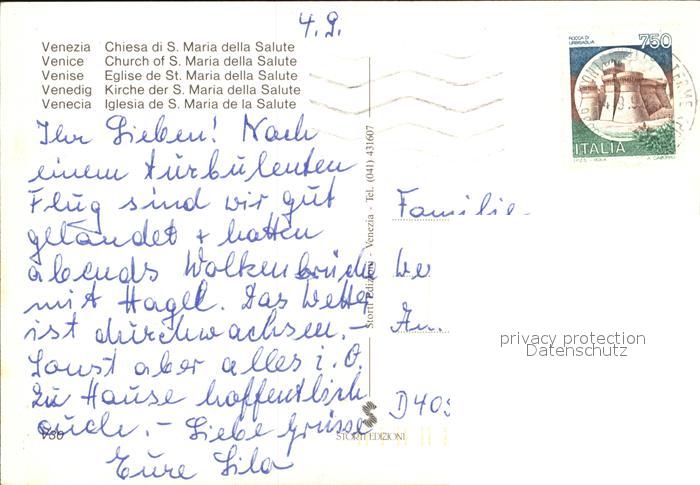 4.9.
Venezia Chiesa di S. Maria della Salute
Venice Church of S. Maria della Salute
Venise Eglise de St. Maria della Salute
Venedig Kirche der S. Maria della Salute
Venecia Iglesia de S. Maria de la Salute
Ihr Lieben! Nach
einem turbulenten
Flug sind wir gut
gelandet + hatten
abends Wolkenbrüche
mit Hagel. Das Wetter
ist durchwachsen. –
Sonst aber alles i. O.
Zu Hause hoffentlich
auch. – Liebe Grüsse
Eure Lila
V30
Storti Edizioni - Venezia - Tel. (041) 431607
STORTI EDIZIONI
ROCCA DI
URBISAGLIA
750
ITALIA
Familie
We
An.
D 405
privacy protection
Datenschutz